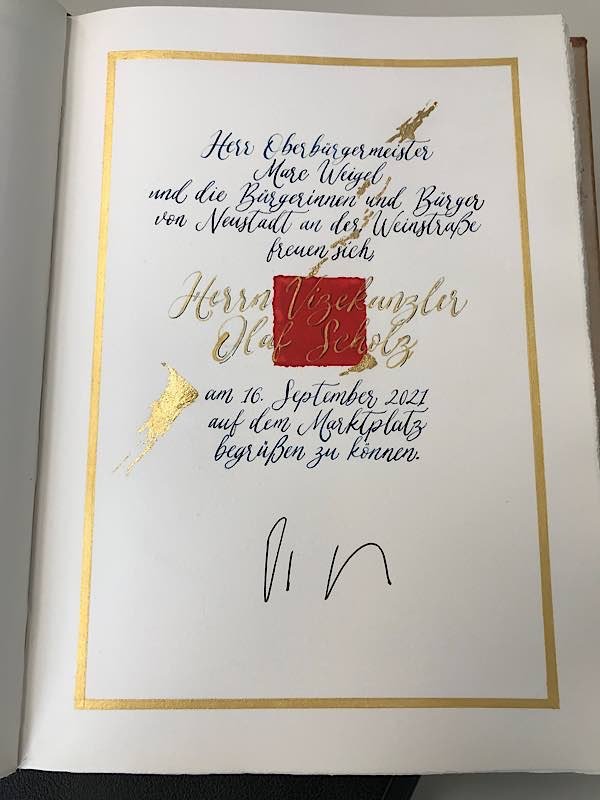 Herr Oberbürgermeister
Marc Weigel
und die Bürgerinnen und Bürger
von Neustadt an der Weinstraße
freuen sich,
Herrn Vizekanzler
Olaf Scholz
am 16. September 2021
auf dem Marktplatz
begrüßen zu können.